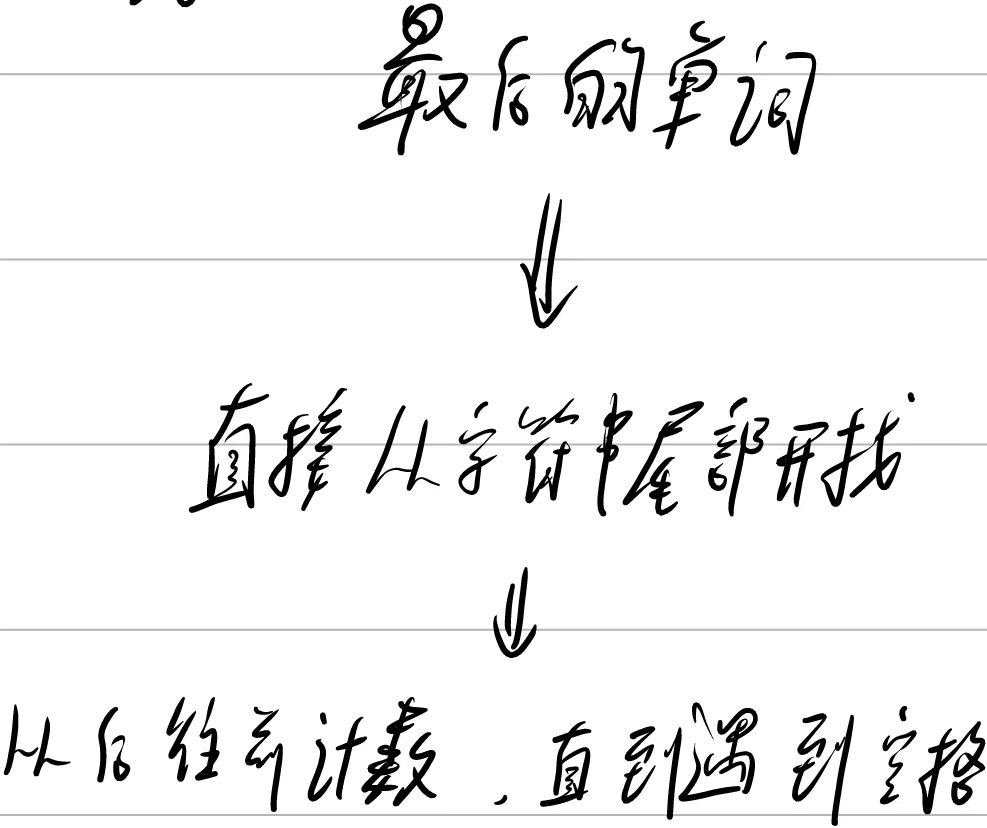 最后的单词
⇓
直接从字符串尾部开找
⇓
从后往前计数，直到遇到空格